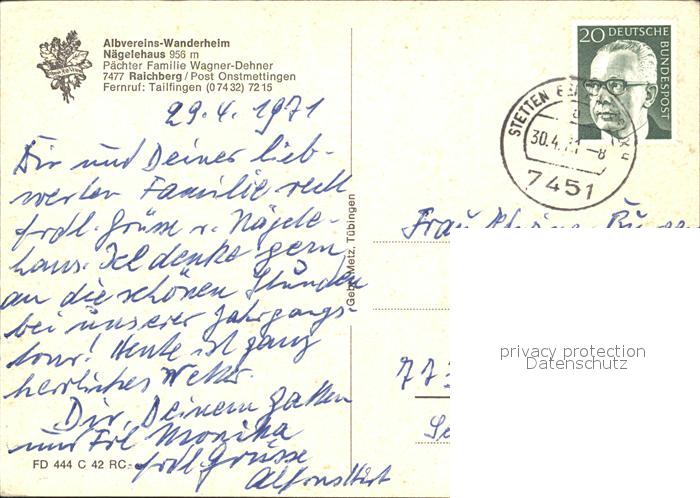 Albvereins-Wanderheim
Nägelehaus 956 m
Pächter Familie Wagner-Dehner
7477 Raichberg / Post Onstmettingen
Fernruf: Tailfingen (0 74 32) 72 15
29.4.1971
Dir und Deiner lieb-
werten Familie recht
frdl. Grüsse v. Nägele-
haus. Ich denke gern
an die schönen Stunden
bei unserer Jahrgangs-
tour! Heute ist ganz
herrliches Wetter.
Dir, Deinem Gatten
und Frl Monika
frdl. Grüsse
Alfons
FD 444 C 42 RC
Gebr. Metz, Tübingen
20 DEUTSCHE
BUNDESPOST
STETTEN
30.4.71-8
7451
Frau
77
privacy protection
Datenschutz